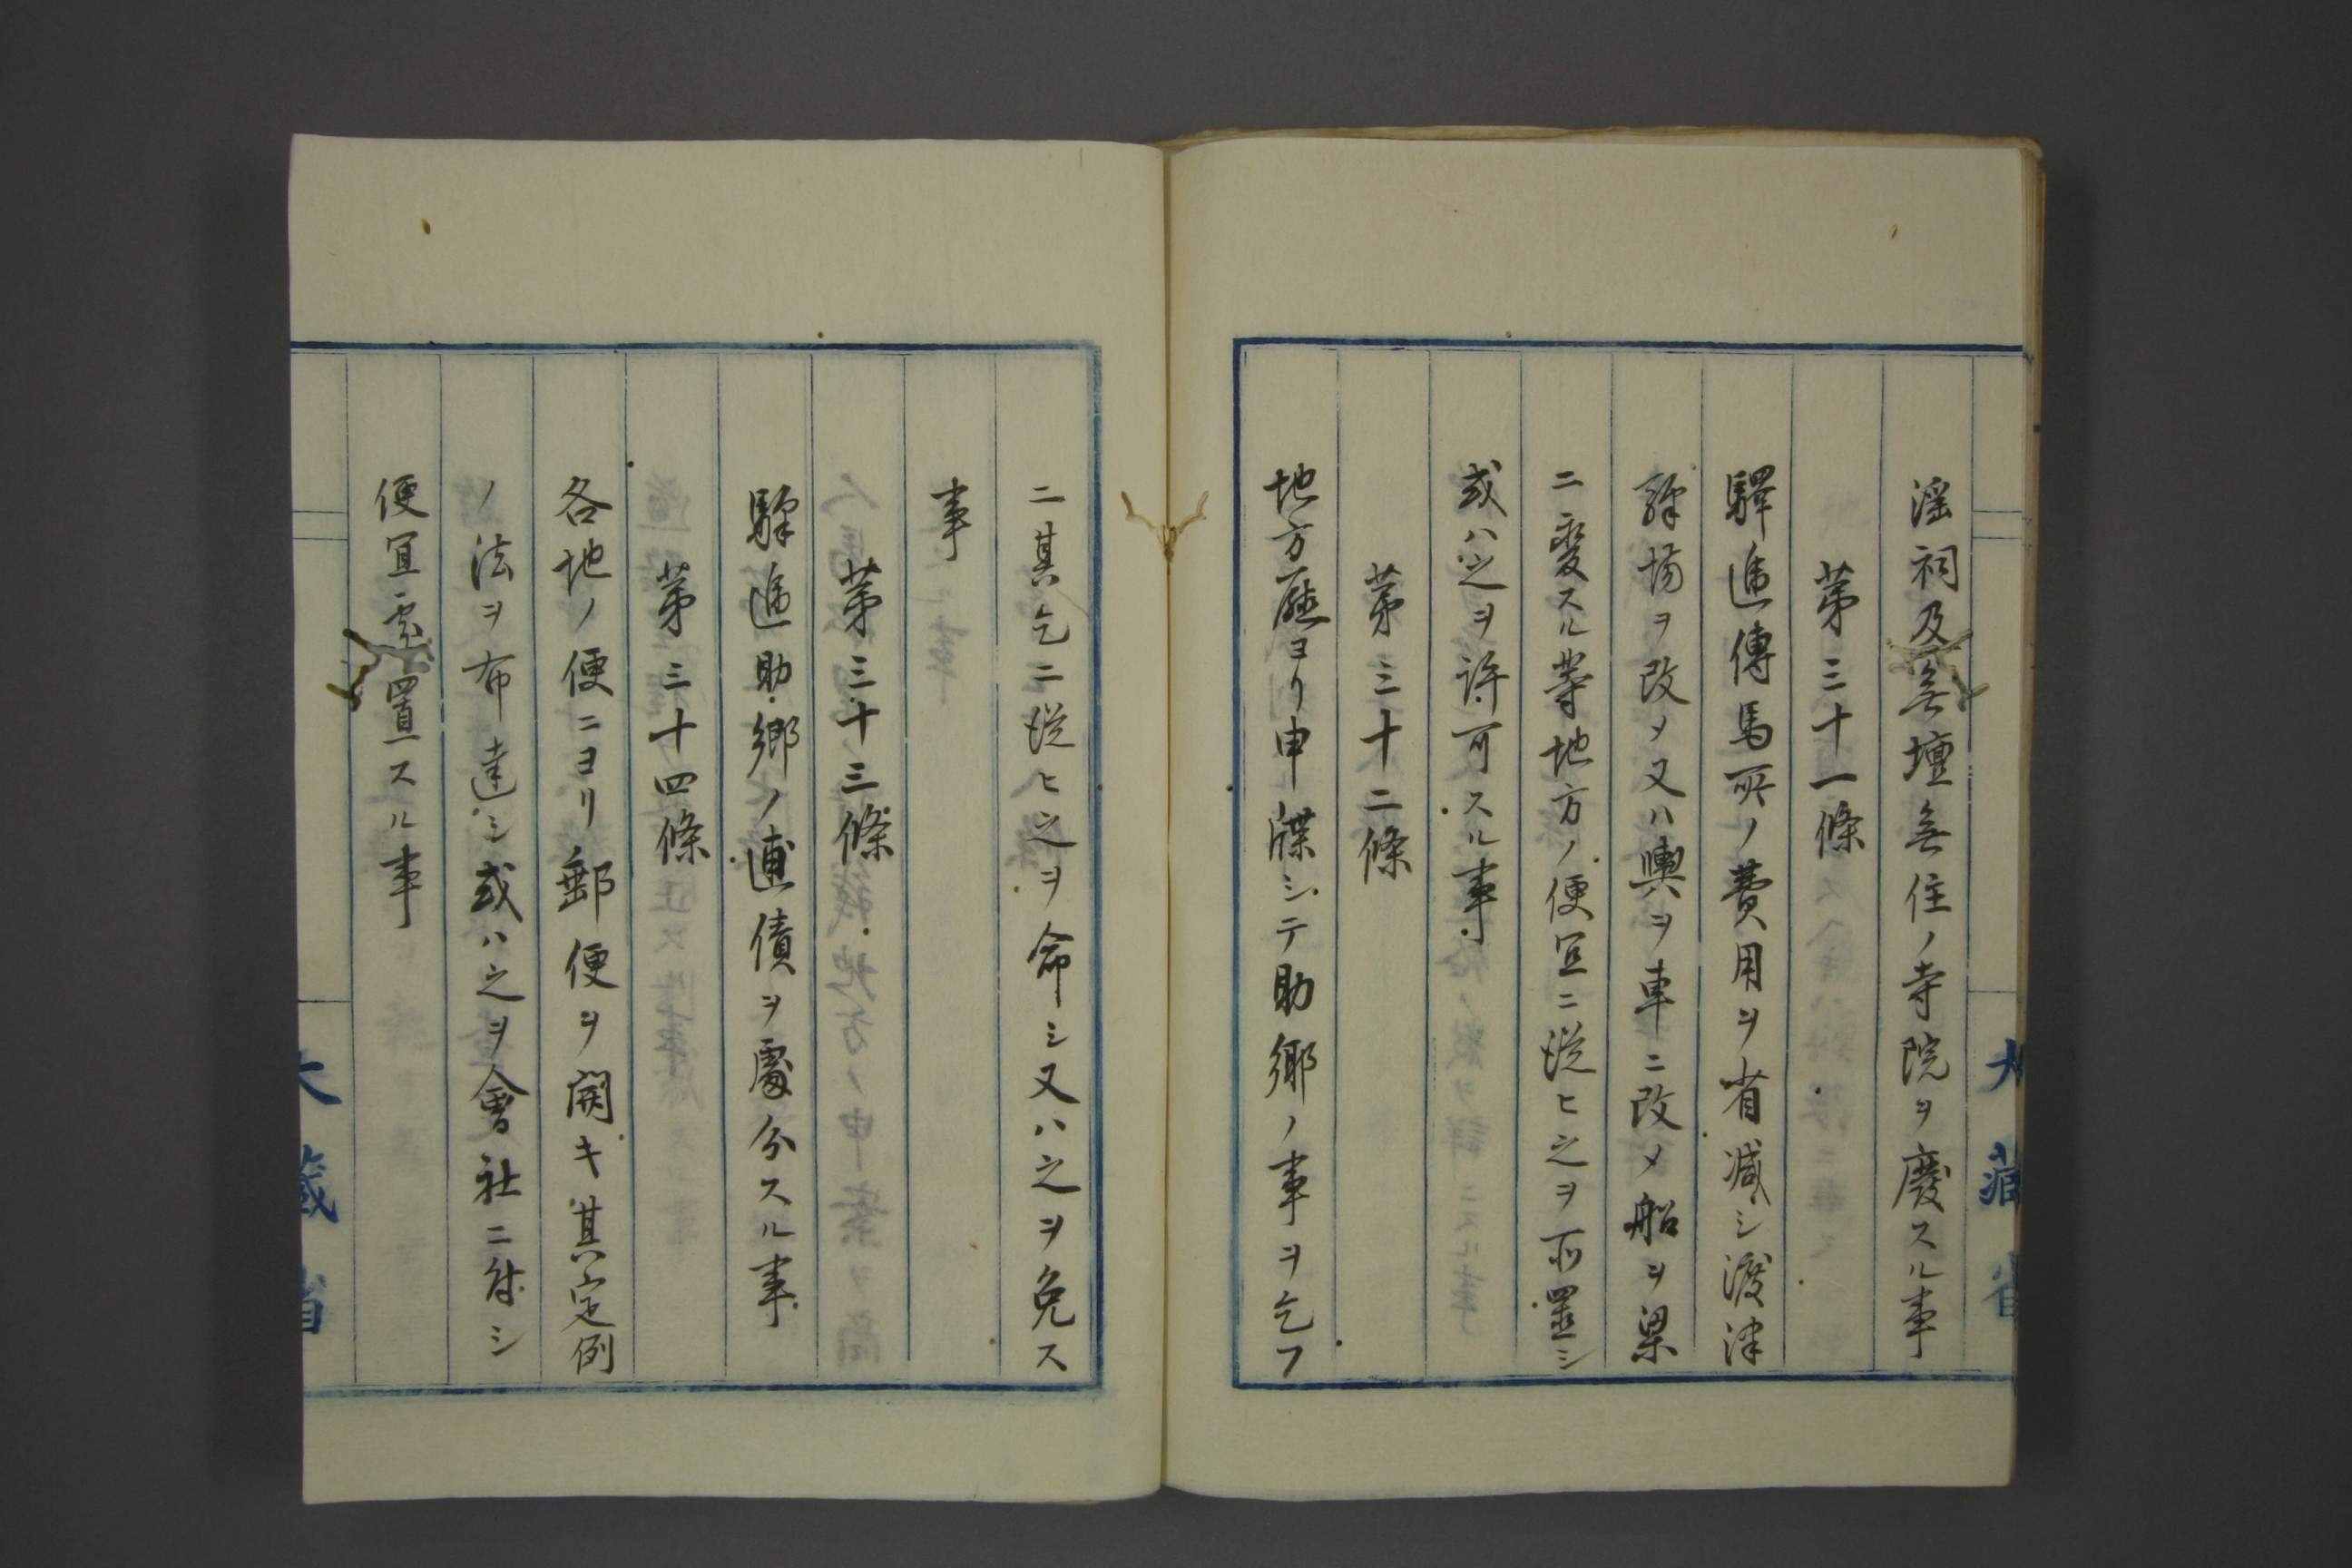 淫祠及無壇無住ノ寺院ヲ廢スル事
第三十一條
驛逓傳馬所ノ費用ヲ省減シ渡津
驛場ヲ改メ又ハ輿ヲ車ニ改メ船ヲ梁
ニ変スル等地方ノ便宜ニ從ヒ之ヲ布置シ
或ハ之ヲ許可スル事
第三十二條
地方廳ヨリ申牒シテ助郷ノ事ヲ乞フ
大藏省
ニ其乞ニ從ヒ之ヲ命シ又ハ之ヲ免ス
事
第三十三條
驛逓助郷ノ逋債ヲ處分スル事
第三十四條
各地ノ便ニヨリ郵便ヲ開キ其定例
ノ法ヲ布達シ或ハ之ヲ會社ニ付シ
便宜處置スル事
大藏省